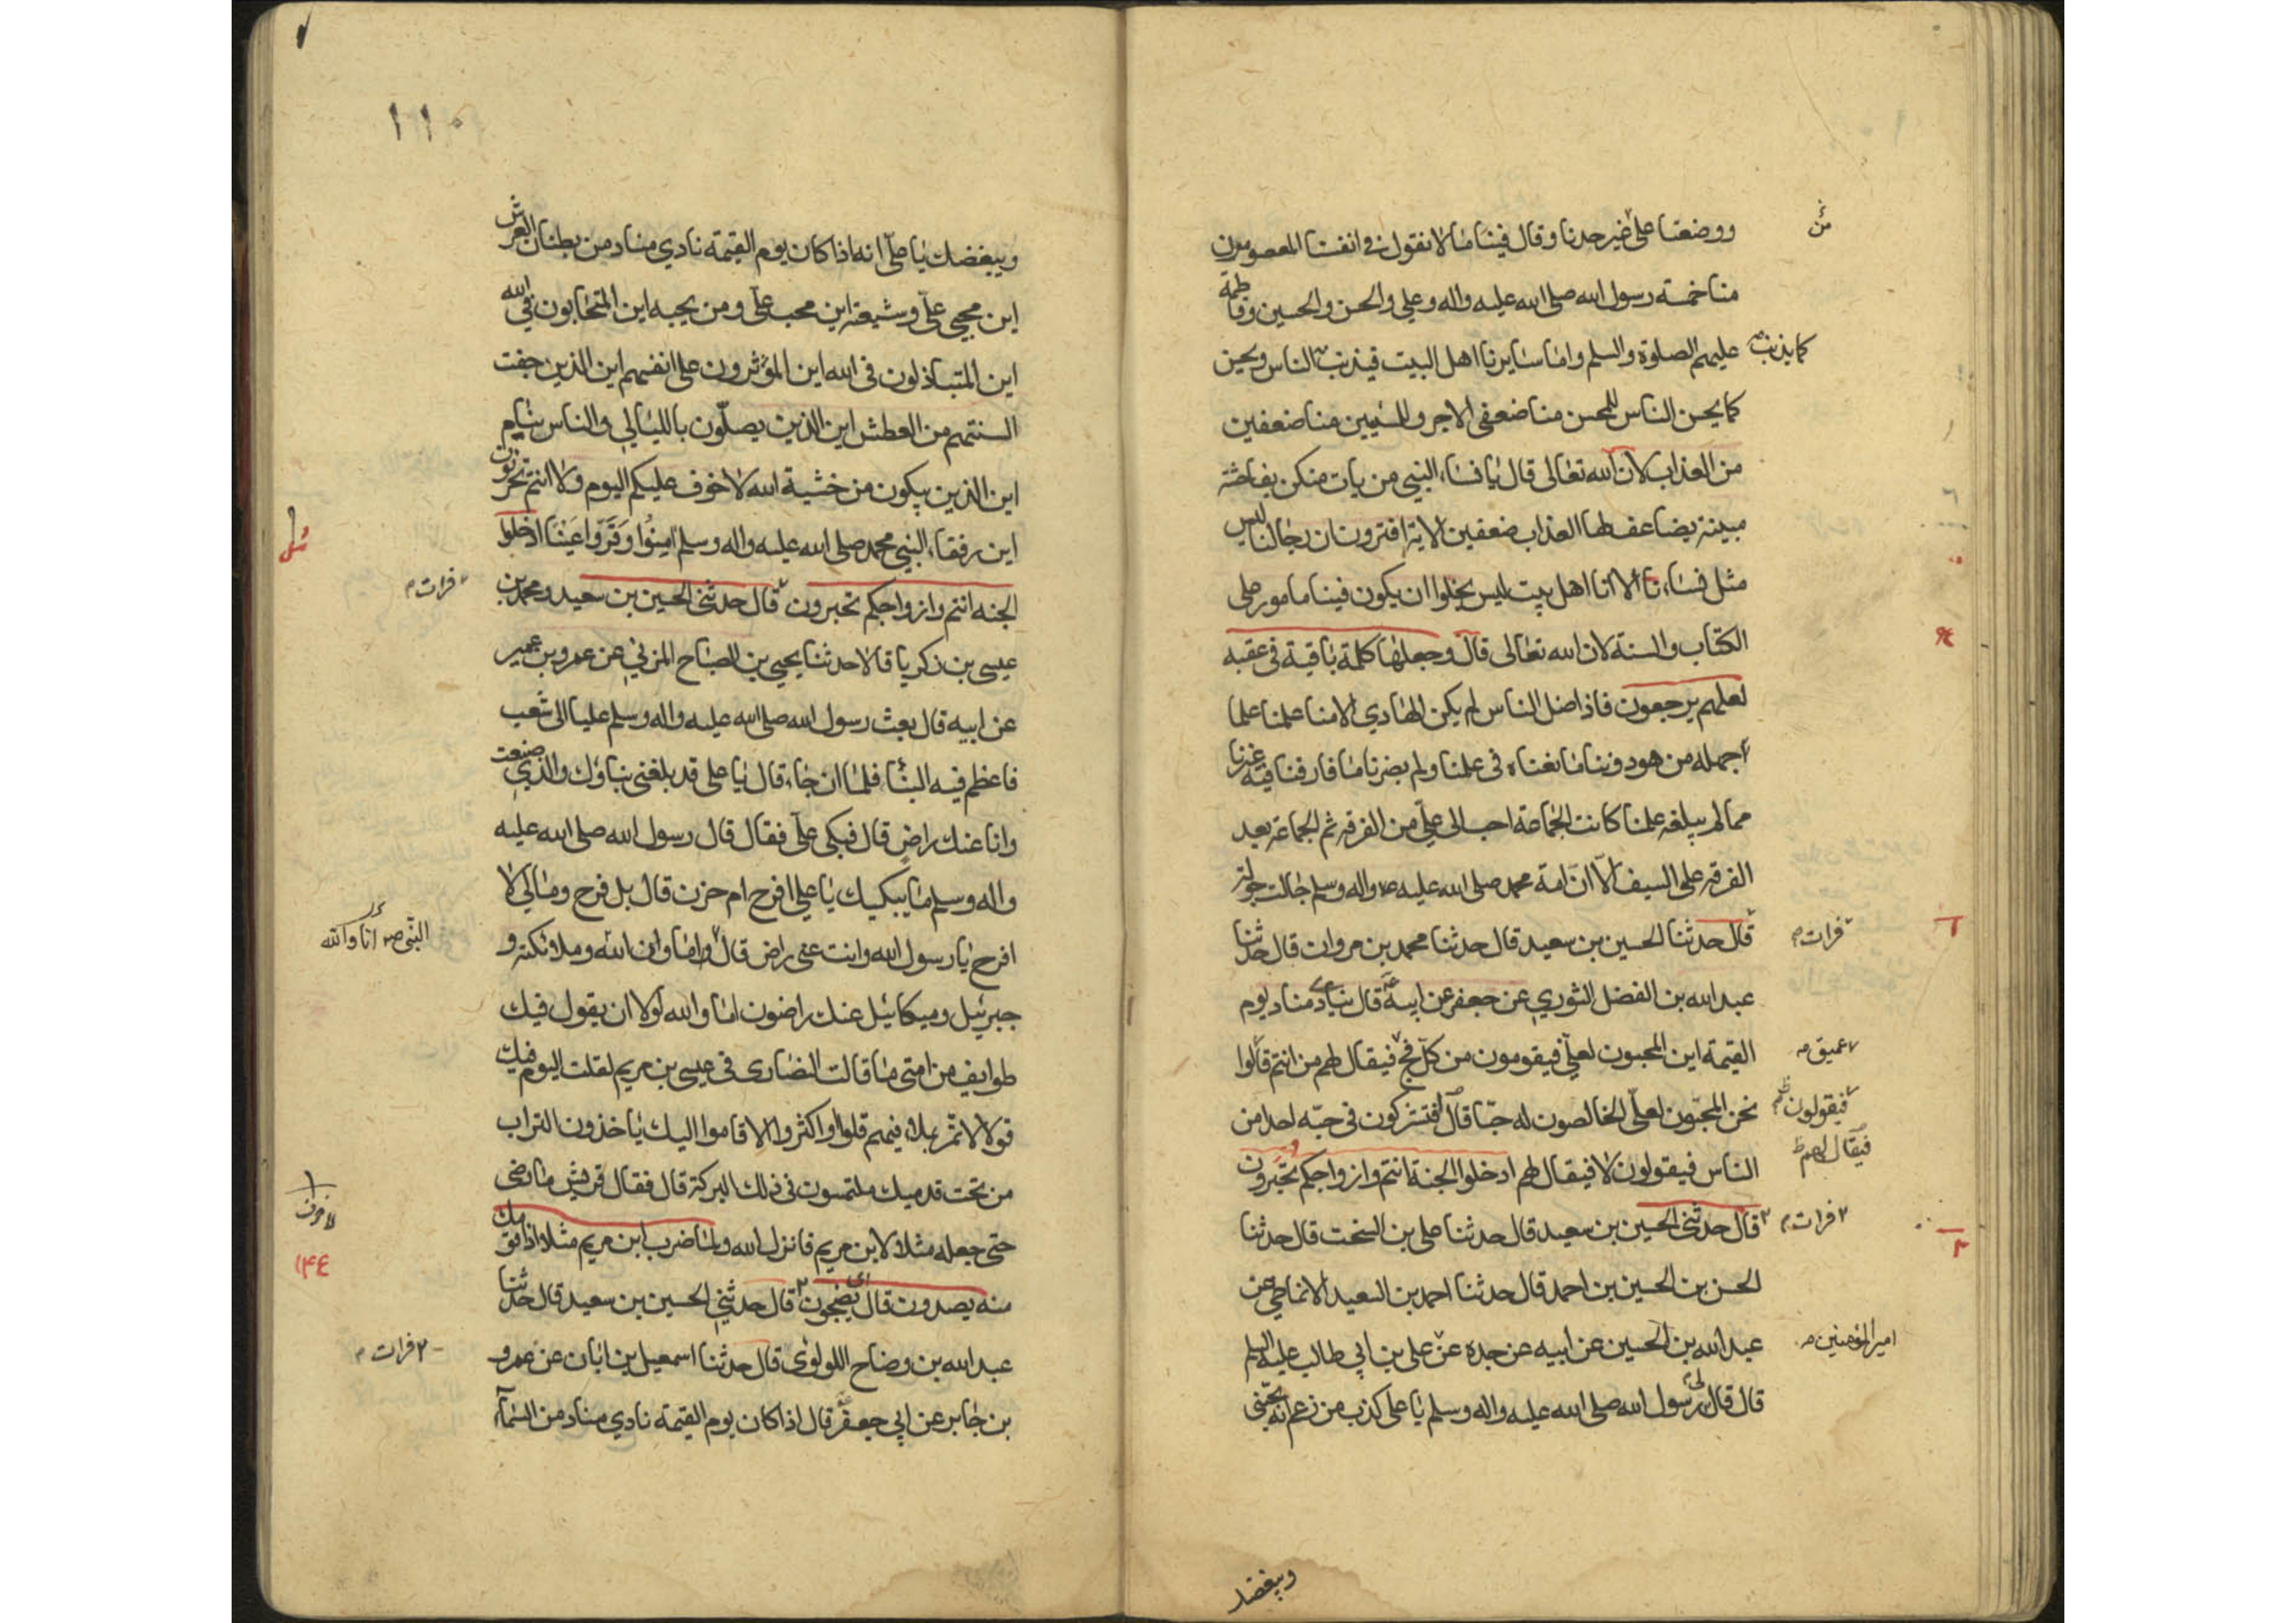 ووضعنا على غير حدنا وقال فينا ما لا نقول في انفسنا المعصومون
منا خمسة رسول الله صلى الله عليه واله وعلي والحسن والحسين وفاطمة
عليهم الصلوة والسلم واما سايرنا اهل البيت فيذنب الناس ويحسن
كما يذنب
كما يحسن الناس للمحسن منا ضعفى الاجر وللمسيئين منا ضعفين
من العذاب لان الله تعالى قال يا نساء النبي من يات منكن بفاحشة
مبينة يضاعف لها العذاب ضعفين الاية افترون ان رجالنا ليس
مثل نساءنا الا انا اهل بيت ليس يخلوا ان يكون فينا مامور على
الكتاب والسنة لان الله تعالى قال وجعلها كلمة باقية في عقبه
لعلهم يرجعون فاذا ضل الناس لم يكن الهادي الا منا علمنا علما
جهله من هو دوننا ما نغناه في علمنا ولم يضرنا ما فارقنا فيه غيرنا
مما لم يبلغه علمنا كانت الجماعة احب الى علي من الفرقه ثم الجماعة بعد
الفرقه على السيف الا ان امة محمد صلى الله عليه واله وسلم جالت جولة
قال حدثنا الحسين بن سعيد قال حدثنا محمد بن مروان قال حدثنا
فرات
عبد الله بن الفضل الثوري عن جعفر عن ابيه قال ينادي مناد يوم
القيمة اين المحبون لعلي فيقومون من كل فج فيقال لهم من انتم قالوا
عميق
نحن المحبون لعلي الخالصون له حبا قال افتشركون في حبه احد من
فيقولون
فيقال لهم
الناس فيقولون لا فيقال لهم ادخلوا الجنة انتم وازواجكم تحبرون
قال حدثني الحسين بن سعيد قال حدثنا علي بن السخت قال حدثنا
٢ فرات
الحسن بن الحسين بن احمد قال حدثنا احمد بن السعيد الانماطي عن
عبد الله بن الحسين عن ابيه عن جده عن علي بن ابي طالب عليه السلم
امير المؤمنين
قال قال لي رسول الله صلى الله عليه واله وسلم يا علي كذب من زعم انه يحبني
ويبغضك
١١٠
ويبغضك يا علي انه اذا كان يوم القيمة نادي مناد من بطنان العرش
اين محبي علي وشيعته اين محب علي ومن يحبه اين المتحابون في الله
اين المتباذلون في الله اين المؤثرون على انفسهم اين الذين جفت
السنتهم من العطش اين الذين يصلون بالليالي والناس نيام
اين الذين يبكون من خشية الله لا خوف عليكم اليوم ولا انتم تحزنون
اين رفقاء النبي محمد صلى الله عليه واله وسلم امنوا وقروا عينا ادخلوا
الجنه انتم وازواجكم تحبرون قال حدثني الحسين بن سعيد ومحمد بن
فرات
عيسى بن زكريا قالا حدثنا يحيى بن الصباح المزني عن عمرو بن عمير
عن ابيه قال بعث رسول الله صلى الله عليه واله وسلم عليا الى شعب
فاعظم فيه النبأ فلما ان جاء قال يا علي قد بلغني نباؤك والذي صنعت
وانا عنك راض قال فبكى علي فقال قال رسول الله صلى الله عليه
واله وسلم ما يبكيك يا علي افرح ام حزن قال بل فرح ومالي لا
افرح يا رسول الله وانت عني راض قال اما وان الله وملائكته و
النبي ص انا والله
جبرئيل وميكائيل عنك راضون اما والله لولا ان يقول فيك
طوايف من امتى ما قالت النصارى في عيسى بن مريم لقلت اليوم فيك
قولا لا تمر بملاء منهم قلوا او اكثروا الا قاموا اليك ياخذون التراب
من تحت قدميك ملتمسون في ذلك البركة قال فقال قريش ما رضي
حتى جعله مثلا لابن مريم فانزل الله ولما ضرب ابن مريم مثلا اذا قومك
١٤٤
منه يصدون قال يضجون قال حدثني الحسين بن سعيد قال حدثنا
عبد الله بن وضاح اللولوى قال حدثنا اسمعيل بن ابان عن عمرو
٢ فرات
بن جابر عن ابي جعفر قال اذا كان يوم القيمة نادي مناد من السماء